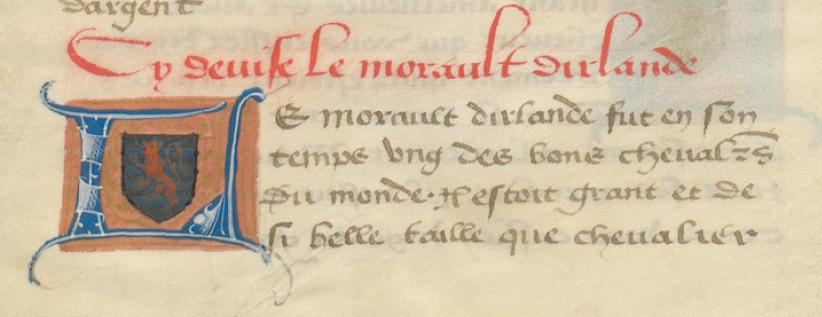 dargent
Cy deuise le morault dirlande
LE morault dirlande fut en son
temps vng des bons cheualrs
du monde. Il estoit grant et de
si belle taille que cheualier